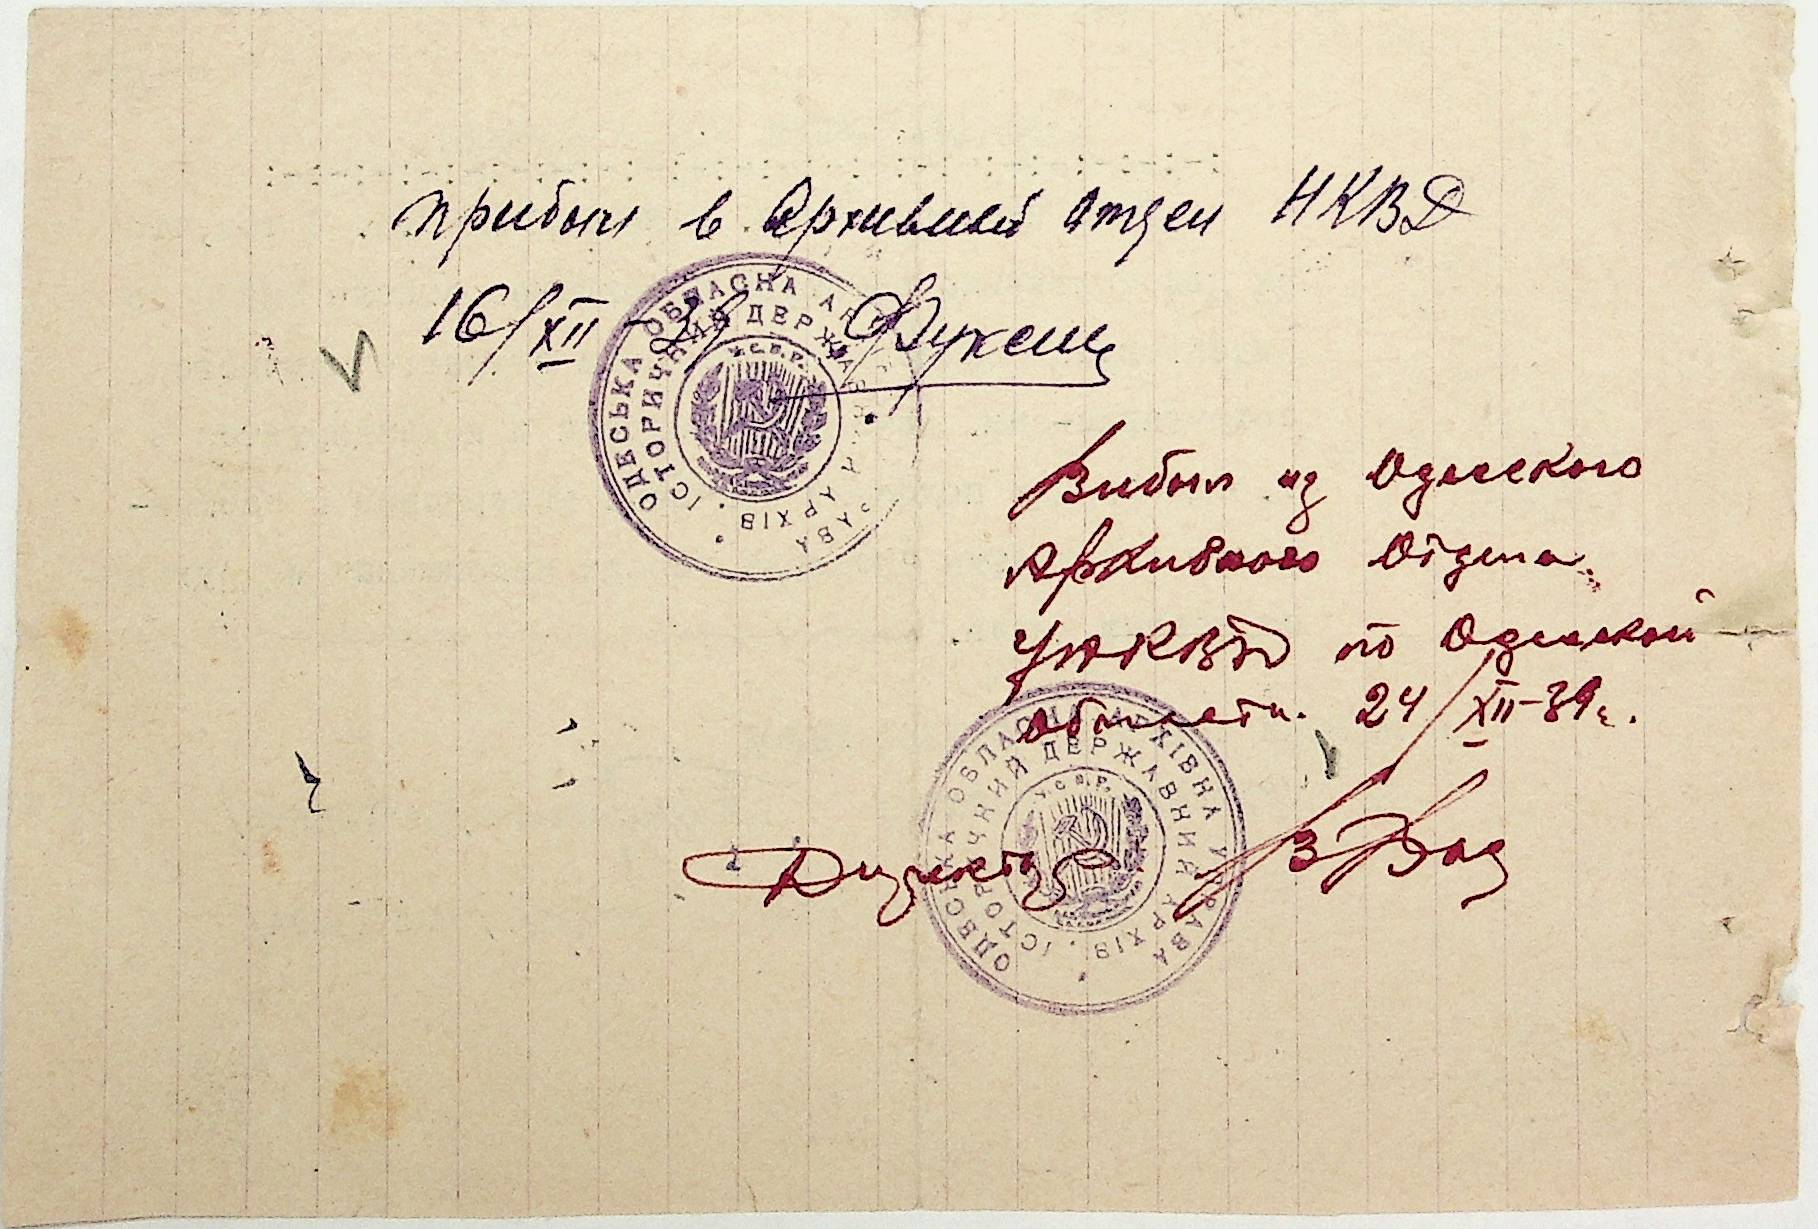 Прибыл в Архивный отдел НКВД
16/XII-39
ОДЕСЬКА ОБЛАСНА АРХІВНА УПРАВА
ІСТОРИЧНИЙ ДЕРЖАВНИЙ АРХІВ
У.С.Р.Р.
Выбыл из Одесского
Архивного Отдела
УНКВД по Одесской
Области. 24/XII-39г.
Директор
ОДЕСЬКА ОБЛАСНА АРХІВНА УПРАВА
ІСТОРИЧНИЙ ДЕРЖАВНИЙ АРХІВ
У.С.Р.Р.